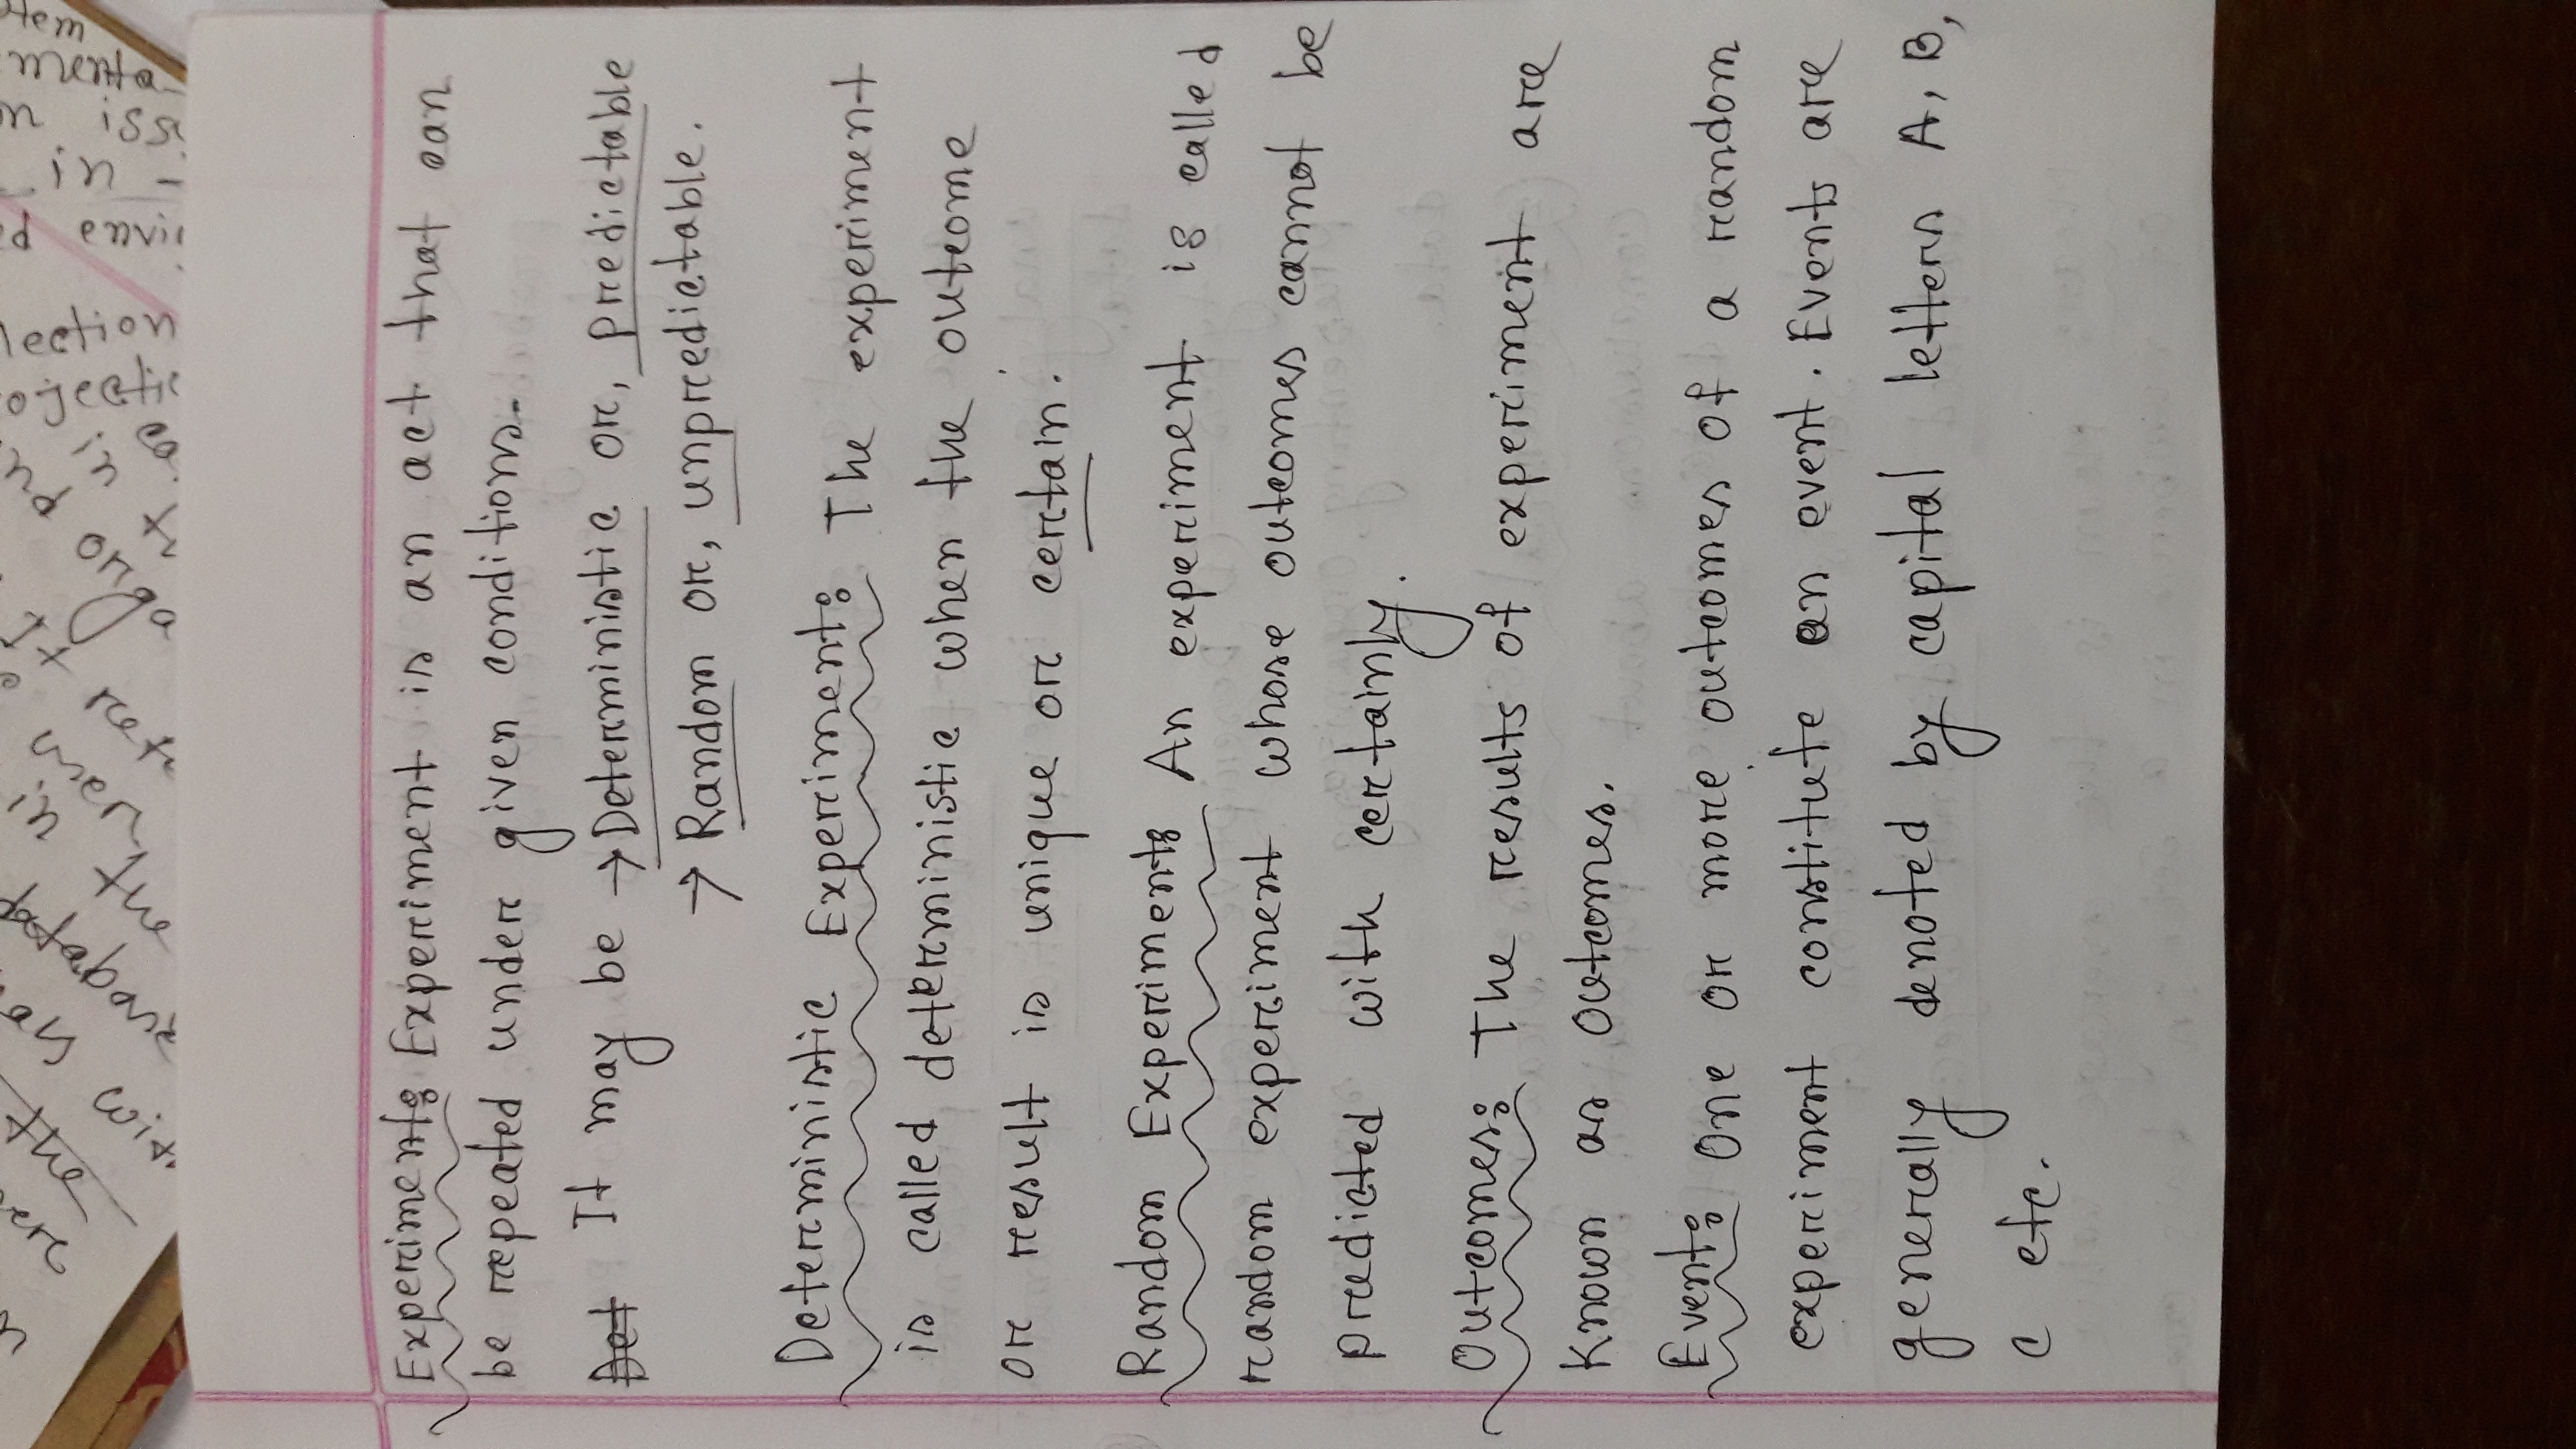 Experiment: Experiment is an act that can
be repeated under given conditions.
Det It may be → Deterministic or, predictable
→ Random or, unpredictable.
Deterministic Experiment: The experiment
is called deterministic when the outcome
or result is unique or certain.
Random Experiment: An experiment is called
random experiment whose outcomes cannot be
predicted with certainly.
Outcomes: The results of experiment are
known as outcomes.
Event: One or more outcomes of a random
experiment constitute an event. Events are
generally denoted by capital letters A, B,
C etc.